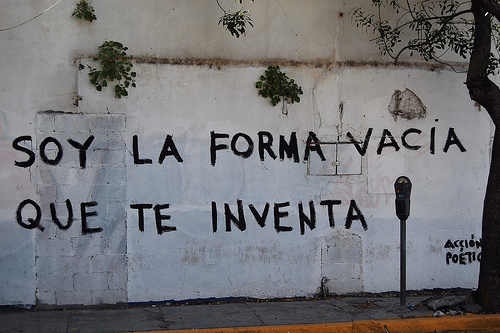 SOY LA FORMA VACÍA
QUE TE INVENTA
ACCIÓN
POÉTIC